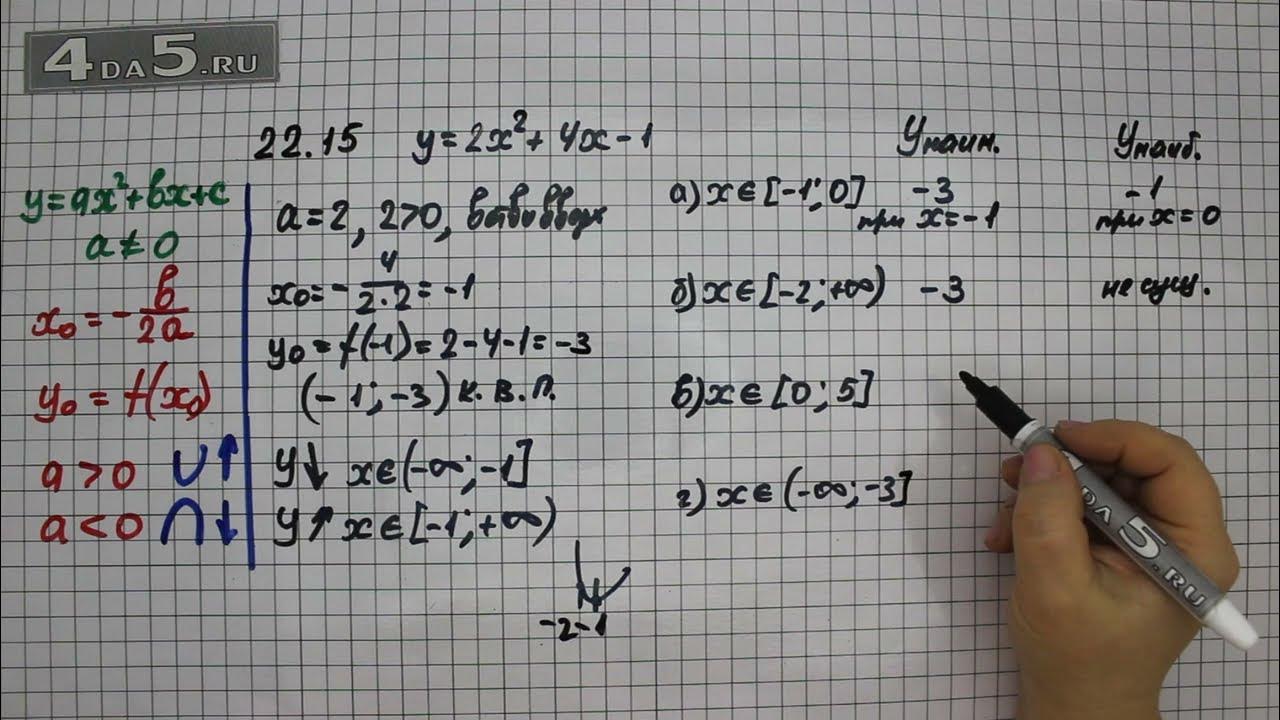 4DA5.RU
22.15 y=2x²+4x-1
y=ax²+bx+c
a≠0
x₀=-b/2a
y₀=f(x₀)
a>0 ∪↑
a<0 ∩↓
a=2, 2>0, ветви вверх
x₀=-4/2·2=-1
y₀=f(-1)=2-4-1=-3
(-1;-3) к.в.п.
y↓ x∈(-∞;-1]
y↑ x∈[-1;+∞)
-2-1
Yнаим. Yнаиб.
а) x∈[-1;0] -3 -1
при x=-1 при x=0
б) x∈[-2;+∞) -3 не сущ.
б) x∈[0;5]
г) x∈(-∞;-3]
4DA5.RU